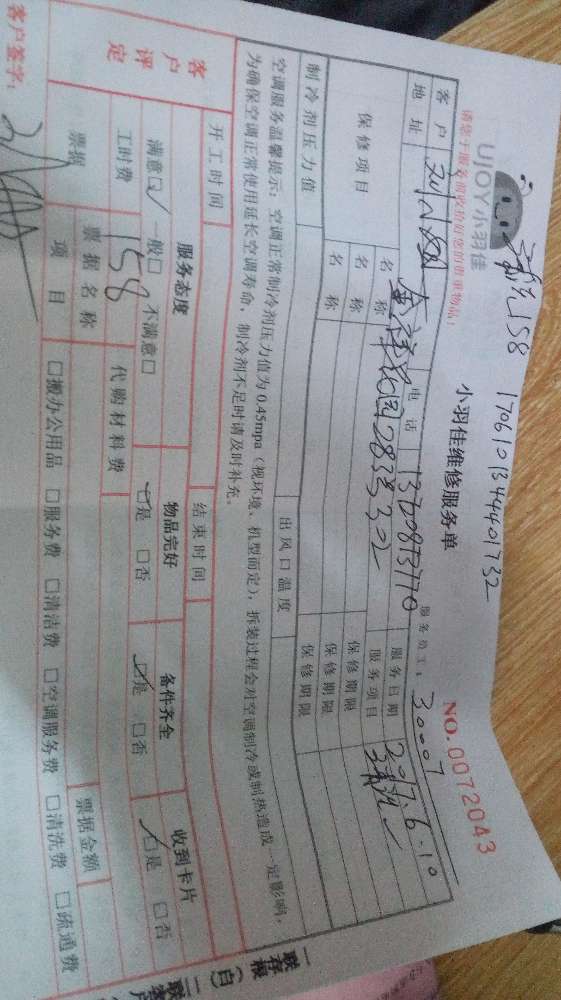 158 1706101344401732
UJOY小羽佳
小羽佳维修服务单
NO.0072043
请您于服务前收拾好您的贵重物品！
服务员工： 30007
客户 电话 服务日期 2017.6.10
地址 283号302 服务项目
保修项目 名称 保修期限
名称 保修期限
名称 保修期限
制冷剂压力值 出风口温度
空调服务温馨提示：空调正常制冷剂压力值为0.45mpa（视环境、机型而定），拆装过程会对空调制冷或制热造成一定影响，
为确保空调正常使用延长空调寿命，制冷剂不足时请及时补充。
开工时间 结束时间
客户评定 服务态度 物品完好 备件齐全 收到卡片
满意☑ 一般□ 不满意□ ☑是 □否 ☑是 □否 ☑是 □否
工时费 158 代购材料费
票据 票据名称 票据金额
项目 □搬办公用品 □服务费 □清洁费 □空调服务费 □清洗费 □疏通费
客户签字：
一联存根（白） 二联客户